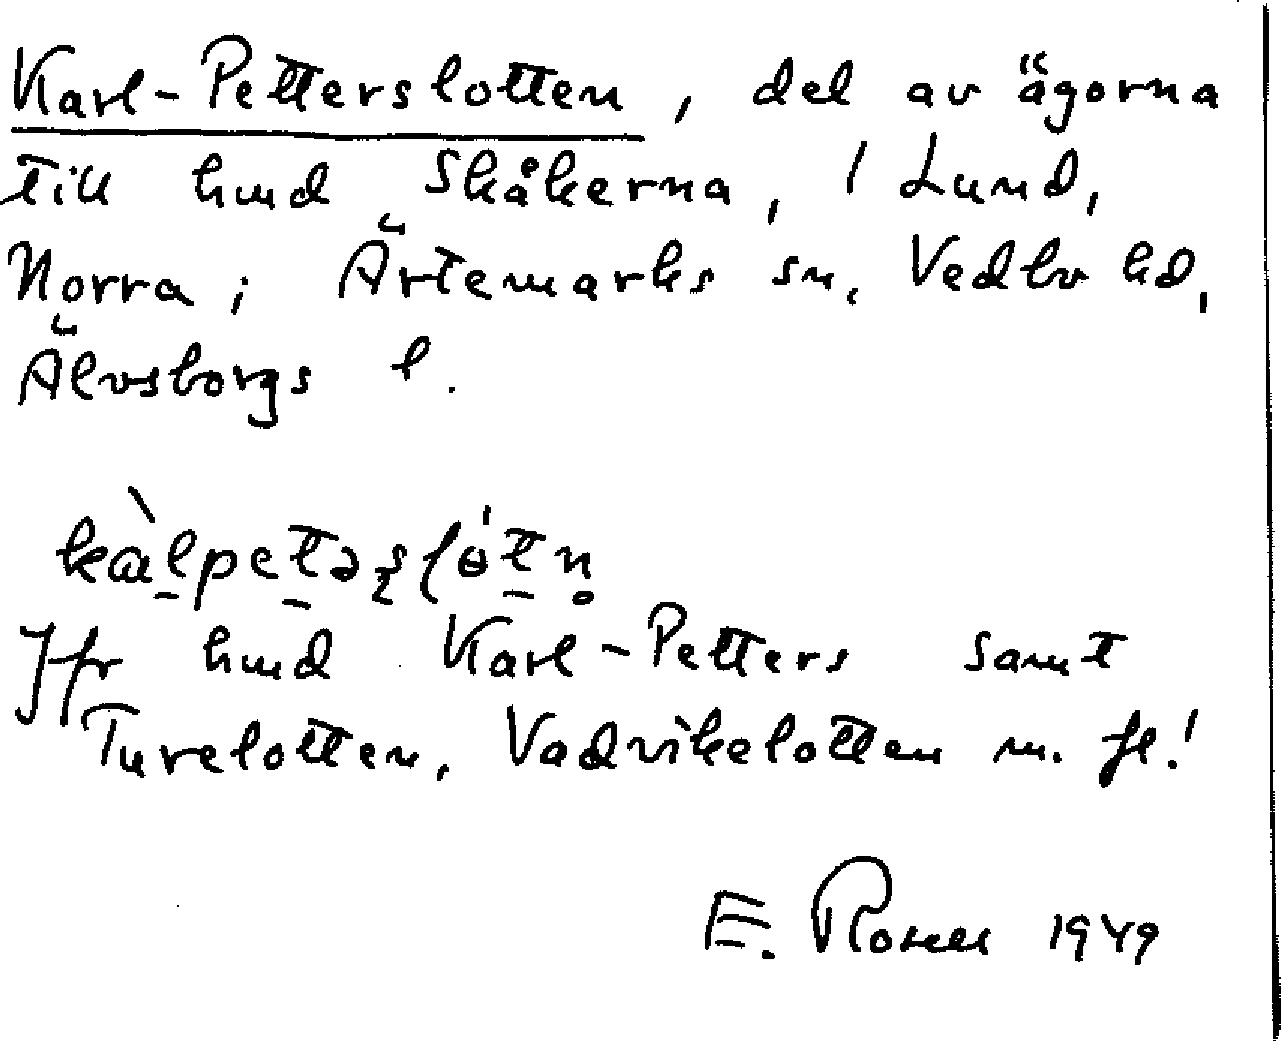 Karl-Petterslotten, del av ägorna
till hmd Skåkerna, 1 Lund,
Norra, Ärtemarks sn, Vedbo hd,
Älvsborgs l.
Jfr hmd Karl-Petters samt
Turelotten, Vadvikelotten m. fl.!
E. Rosell 1949